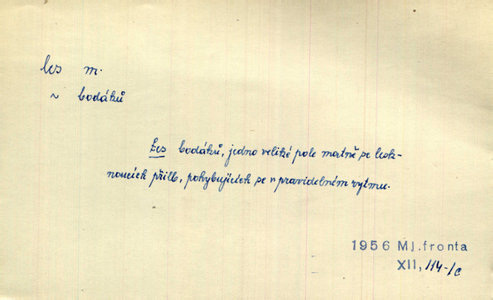 les m.
~ bodáků
Les bodáků, jedno veliké pole matně se lesk-
noucích přileb, pohybujících se v pravidelném rytmu.
1956 Ml.fronta
XII, 114-1/c